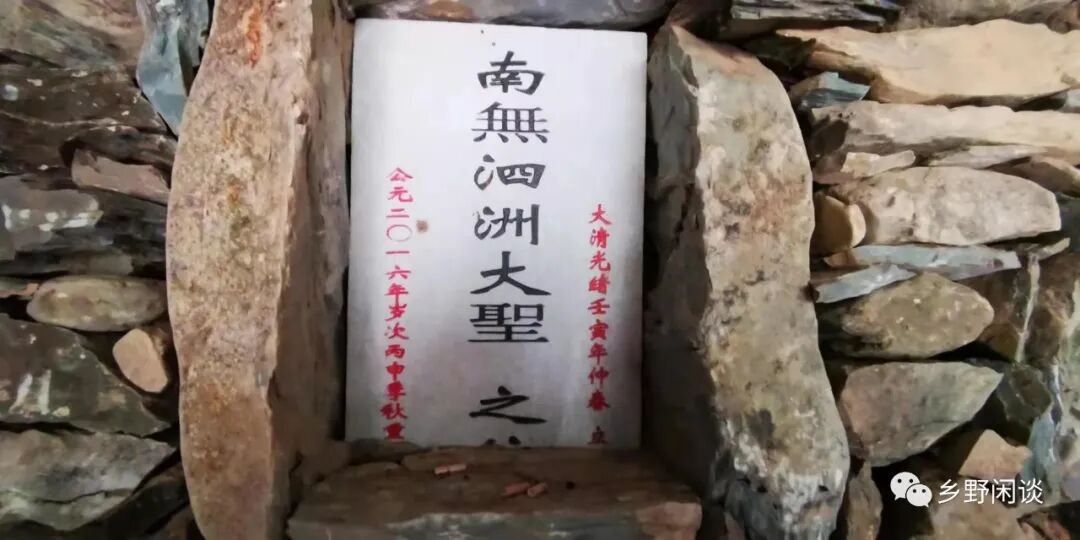 大清光緒壬寅年仲春 立
南無泗洲大聖 之
公元二〇一六年岁次丙申季秋重
乡野闲谈